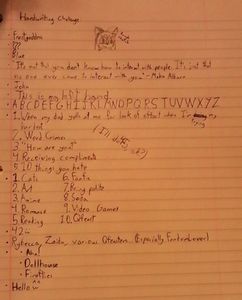 Handwriting Challenge:
Frostgoddess
???
Blue
"It's not that you don't know how to interact with people. It's just that
no one ever came to interact with you" - Mako
John
This is my best friend
ABCDEFGHIJKLMNOPQRSTUVWXYZ
1. When my dad yells at me for lack of effort when I'm trying
my hardest
2. Word Crimes
3. "How are you?"
4. Receiving compliments
5. 10 things you hate
1. Cats
6. Fanfic
2. Art
7. Being polite
3. Anime
8. Sofa
4. Romance
9. Video Games
5. Reading
10. Qfeast
42
Rybecca, Zaida, various Qfeasters (Especially
Aha!
Dollhouse
Fireflies
Hello